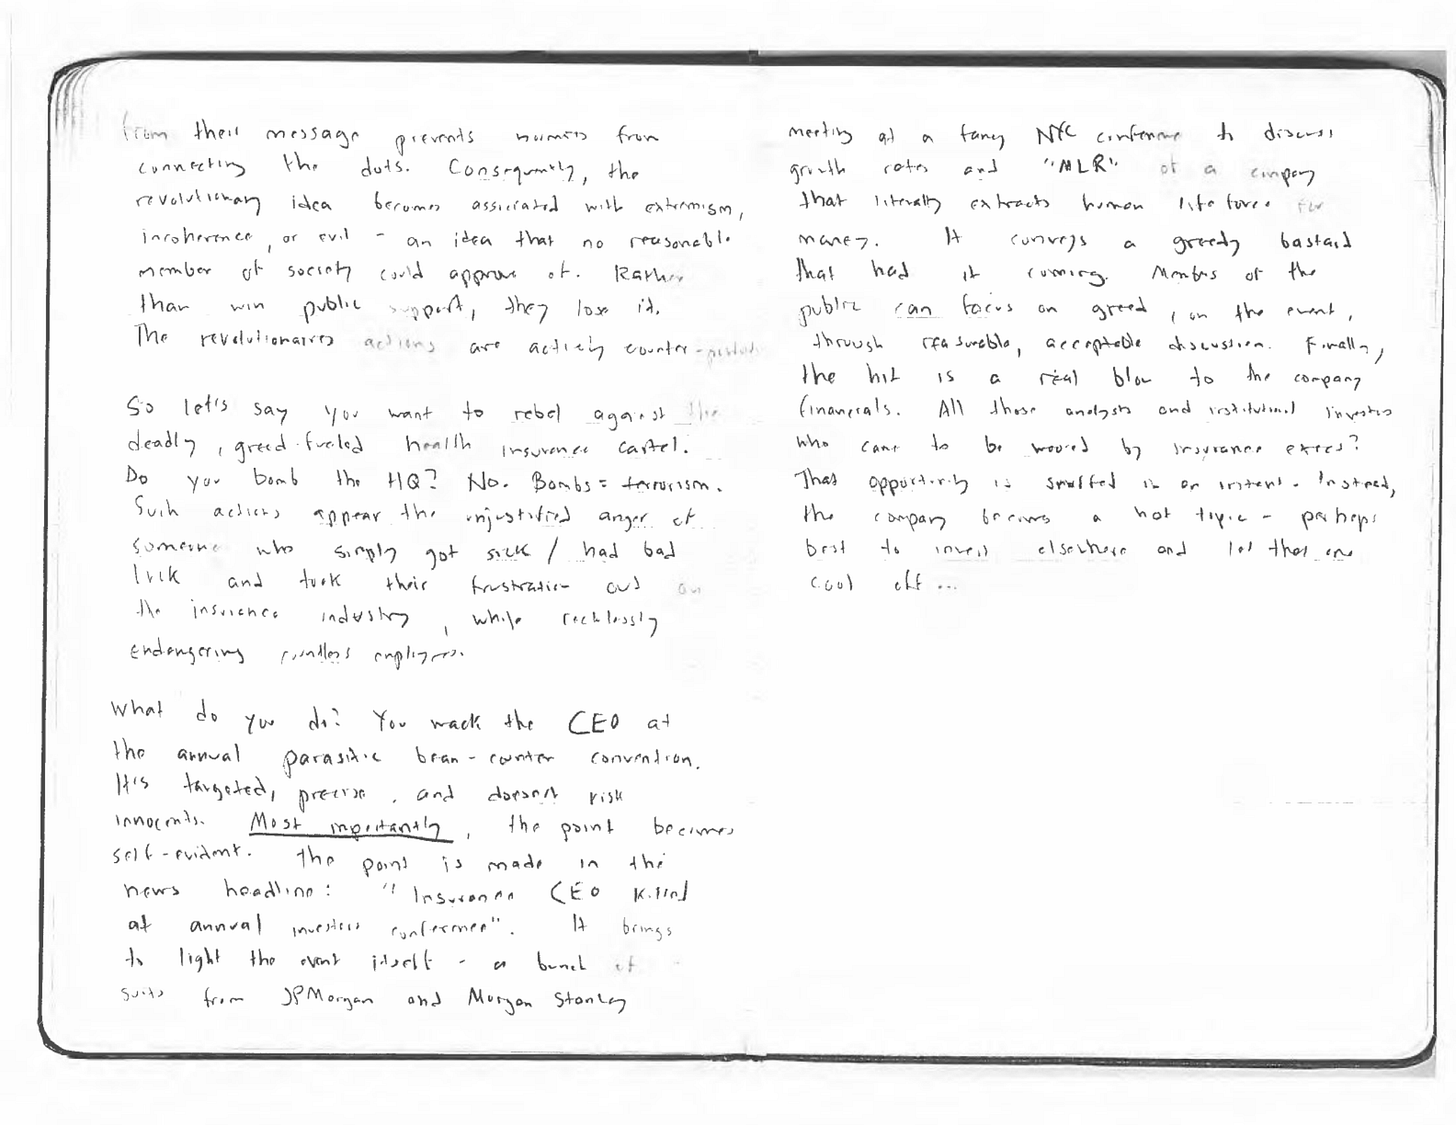 from their message prevents normies from
connecting the dots. Consequently, the
revolutionary idea becomes associated with extremism,
incoherence, or evil - an idea that no reasonable
member of society could approve of. Rather
than win public support, they lose it.
The revolutionaries actions are actively counter-
So let's say you want to rebel against the
deadly, greed-fueled health insurance cartel.
Do you bomb the HQ? No. Bombs = terrorism.
Such actions appear the unjustified anger of
someone who simply got sick / had bad
luck and took their frustration out on
the insurance industry, while recklessly
endangering countless employees.
What do you do? You wack the CEO at
the annual parasitic bean-counter convention.
It's targeted, precise, and doesn't risk
innocents. Most importantly, the point becomes
self-evident. The point is made in the
news headline: "Insurance CEO killed
at annual investors conference". It brings
to light the event itself - a bunch of
suits from JPMorgan and Morgan Stanley
meeting at a fancy NYC conference to discuss
growth rates and "MLR" of a company
that literally extracts human life force for
money. It conveys a greedy bastard
that had it coming. Members of the
public can focus on greed, on the event,
through reasonable, acceptable discussion. Finally,
the hit is a real blow to the company
financials. All those analysts and institutional investors
who came to be wooed by insurance execs?
That opportunity is snuffed in an instant. Instead,
the company becomes a hot topic - perhaps
best to invest elsewhere and let that one
cool off...